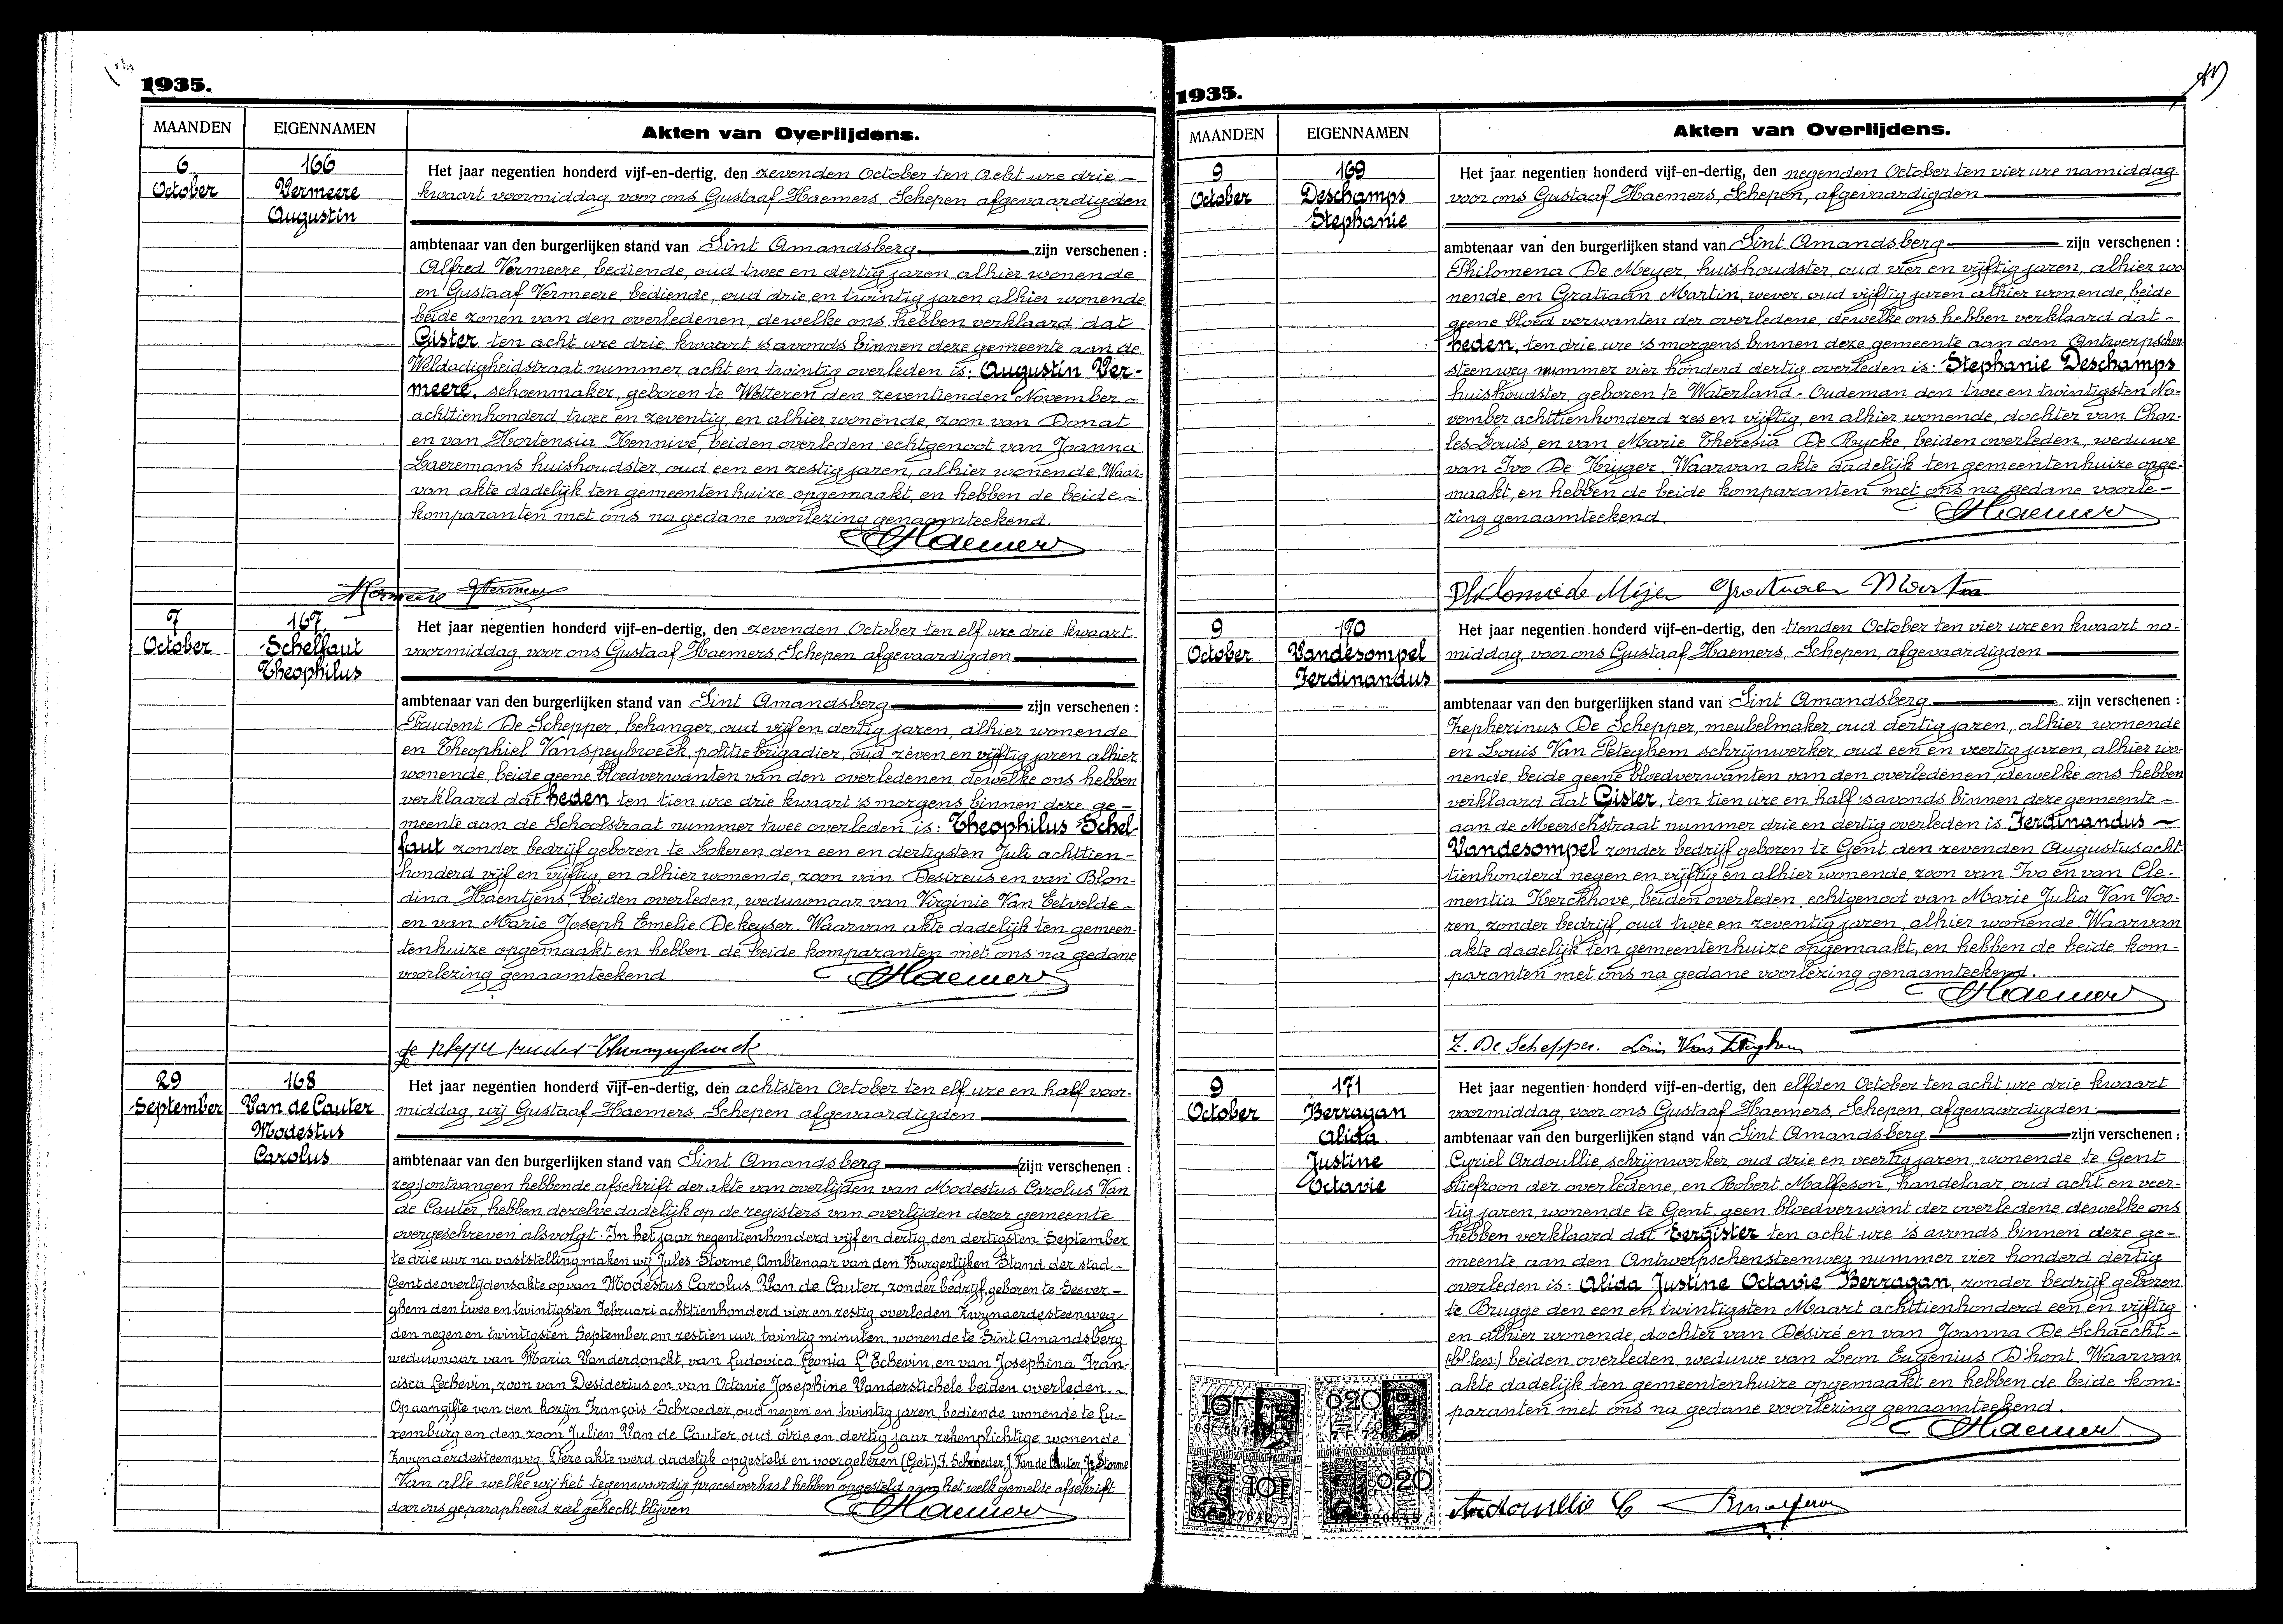 1935.
MAANDEN
EIGENNAMEN
Akten van Overlijdens.
6
October
166
Vermeere
Augustin
Het jaar negentien honderd vijf-en-dertig, den zevenden October ten acht ure drie –
kwaart voormiddag voor ons Gustaaf Haemers, Schepen afgevaardigden
ambtenaar van den burgerlijken stand van Sint Amandsberg zijn verschenen :
Alfred Vermeere, bediende, oud twee en dertig jaren, alhier wonende
en Gustaaf Vermeere, bediende, oud drie en twintig jaren alhier wonende
beide zonen van den overledenen, dewelke ons hebben verklaard dat
Gister ten acht ure drie kwaart 's avonds binnen deze gemeente aan de
Weldadigheidstraat nummer acht en twintig overleden is: Augustin Ver-
meere, schoenmaker, geboren te Wetteren den zeventienden November –
achttienhonderd twee en zeventig, en alhier wonende, zoon van Donat
en van Hortensia Hennive, beiden overleden, echtgenoot van Joanna
Laeremans huishoudster, oud een en zestig jaren, alhier wonende. Waar-
van akte dadelijk ten gemeentenhuize opgemaakt, en hebben de beide –
komparanten met ons na gedane voorlezing genaamteekend.
Haemers
Vermeere GVermeere
7
October
167
Schelfaut
Theophilus
Het jaar negentien honderd vijf-en-dertig, den zevenden October ten elf ure drie kwaart
voormiddag, voor ons Gustaaf Haemers, Schepen afgevaardigden
ambtenaar van den burgerlijken stand van Sint Amandsberg zijn verschenen :
Prudent De Schepper, behanger, oud vijf en dertig jaren, alhier wonende
en Theophiel Vanspeybroeck, politie brigadier, oud zeven en vijftig jaren alhier
wonende, beide geene bloedverwanten van den overledenen, dewelke ons hebben
verklaard dat heden ten tien ure drie kwaart 's morgens binnen deze ge –
meente aan de Schoolstraat nummer twee overleden is: Theophilus Schel-
faut zonder bedrijf geboren te Lokeren den een en dertigsten Juli achttien-
honderd vijf en vijftig, en alhier wonende, zoon van Desireus en van Blon-
dina Haentjens, beiden overleden, weduwnaar van Virginie Van Eetvelde –
en van Marie Joseph Emelie Dekeyser. Waarvan akte dadelijk ten gemeen-
tenhuize opgemaakt en hebben de beide komparanten met ons na gedane
voorlezing genaamteekend.
Haemers
29
September
168
Van de Cauter
Modestus
Carolus
Het jaar negentien honderd vijf-en-dertig, den achtsten October ten elf ure en half voor-
middag, wij Gustaaf Haemers, Schepen afgevaardigden
ambtenaar van den burgerlijken stand van Sint Amandsberg (zijn verschenen :
zeg:) ontvangen hebbende afschrift der akte van overlijden van Modestus Carolus Van
de Cauter, hebben dezelve dadelijk op de registers van overlijden dezer gemeente
overgeschreven alsvolgt: In het jaar negentienhonderd vijf en dertig, den dertigsten September
te drie uur na vaststelling maken wij Jules Storme, Ambtenaar van den Burgerlijken Stand der stad –
Gent de overlijdensakte op van Modestus Carolus Van de Cauter, zonder bedrijf, geboren te Seever –
ghem den twee en twintigsten Februari achttienhonderd vier en zestig, overleden Zwynaerdesteenweg
den negen en twintigsten September om zestien uur twintig minuten, wonende te Sint Amandsberg
weduwnaar van Maria Vanderdonckt, van Ludovica Leonia L'Echevin, en van Josephina Fran-
cisca Lechevin, zoon van Desiderius en van Octavie Josephine Vanderstichele beiden overleden. –
Op aangifte van den kozijn François Schroeder, oud negen en twintig jaren, bediende, wonende te Lu-
xemburg en den zoon Julien Van de Cauter, oud drie en dertig jaar rekenplichtige wonende
Zwynaerdesteenweg. Deze akte werd dadelijk opgesteld en voorgelezen (Get.) F. Schroeder, J. Van de Cauter, J. Storme
Van alle welke wij het tegenwoordig procesverbaal hebben opgesteld aan het welk gemelde afschrift
door ons geparapheerd zal gehecht blijven
Haemers
1935.
MAANDEN
EIGENNAMEN
Akten van Overlijdens.
9
October
169
Deschamps
Stephanie
Het jaar negentien honderd vijf-en-dertig, den negenden October ten vier ure namiddag
voor ons Gustaaf Haemers, Schepen, afgevaardigden
ambtenaar van den burgerlijken stand van Sint Amandsberg zijn verschenen :
Philomena De Meyer, huishoudster, oud vier en vijftig jaren, alhier wo-
nende, en Gratiaan Martin, wever, oud vijftig jaren alhier wonende, beide
geene bloed verwanten der overledene, dewelke ons hebben verklaard dat –
heden, ten drie ure 's morgens binnen deze gemeente aan den Antwerpschen
steenweg nummer vier honderd dertig overleden is: Stephanie Deschamps
huishoudster, geboren te Waterland-Oudeman den twee en twintigsten No-
vember achttienhonderd zes en vijftig, en alhier wonende, dochter van Char-
les Louis, en van Marie Theresia De Rycke, beiden overleden, weduwe
van Ivo De Kryger. Waarvan akte dadelijk ten gemeentenhuize opge-
maakt, en hebben de beide komparanten met ons na gedane voorle –
zing genaamteekend.
Haemers
Philomie de Mijer Gratiaan Martin
9
October
170
Vandesompel
Ferdinandus
Het jaar negentien honderd vijf-en-dertig, den tienden October ten vier ure en kwaart na-
middag, voor ons Gustaaf Haemers, Schepen, afgevaardigden
ambtenaar van den burgerlijken stand van Sint Amandsberg zijn verschenen :
Zepherinus De Schepper, meubelmaker, oud dertig jaren, alhier wonende
en Louis Van Peteghem schrijnwerker, oud een en veertig jaren, alhier wo-
nende, beide geene bloedverwanten van den overledenen, dewelke ons hebben
verklaard dat Gister, ten tien ure en half 's avonds binnen deze gemeente –
aan de Meerschstraat nummer drie en dertig overleden is Ferdinandus –
Vandesompel zonder bedrijf geboren te Gent den zevenden Augustus acht-
tienhonderd negen en vijftig en alhier wonende, zoon van Ivo en van Cle-
mentia Kerckhove, beiden overleden, echtgenoot van Marie Julia Van Voo-
ren, zonder bedrijf, oud twee en zeventig jaren, alhier wonende. Waarvan
akte dadelijk ten gemeentenhuize opgemaakt, en hebben de beide kom-
paranten met ons na gedane voorlezing genaamteekend.
Haemers
Z. De Schepper. Louis Van Peteghem
9
October
171
Berragan
Alida
Justine
Octavie
Het jaar negentien honderd vijf-en-dertig, den elfden October ten acht ure drie kwaart
voormiddag, voor ons Gustaaf Haemers, Schepen, afgevaardigden
ambtenaar van den burgerlijken stand van Sint Amandsberg zijn verschenen :
Cyriel Ardoullie, schrijnwerker, oud drie en veertig jaren, wonende te Gent
stiefzoon der overledene, en Robert Malfeson, handelaar, oud acht en veer-
tig jaren, wonende te Gent, geen bloedverwant der overledene dewelke ons
hebben verklaard dat Eergister ten acht ure 's avonds binnen deze ge –
meente aan den Antwerpschensteenweg nummer vier honderd dertig
overleden is: Alida Justine Octavie Berragan, zonder bedrijf geboren
te Brugge den een en twintigsten Maart achttienhonderd een en vijftig
en alhier wonende, dochter van Désiré en van Joanna De Schaecht –
beiden overleden, weduwe van Leon Eugenius D'hont. Waarvan
akte dadelijk ten gemeentenhuize opgemaakt en hebben de beide kom-
paranten met ons na gedane voorlezing genaamteekend.
Haemers
10F
020
10F
020
Ardoullie C